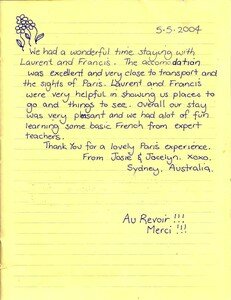 5-5-2004
We had a wonderful time staying with
Laurent and Francis. The accomodation
was excellent and very close to transport and
the sights of Paris. Laurent and Francis
were very helpful in showing us places to
go and things to see. Overall our stay
was very pleasant and we had alot of fun
learning some basic French from expert
teachers.
Thank You for a lovely Paris experience.
From Josie & Jocelyn. xoxo.
Sydney, Australia.
Au Revoir !!!
Merci !!!